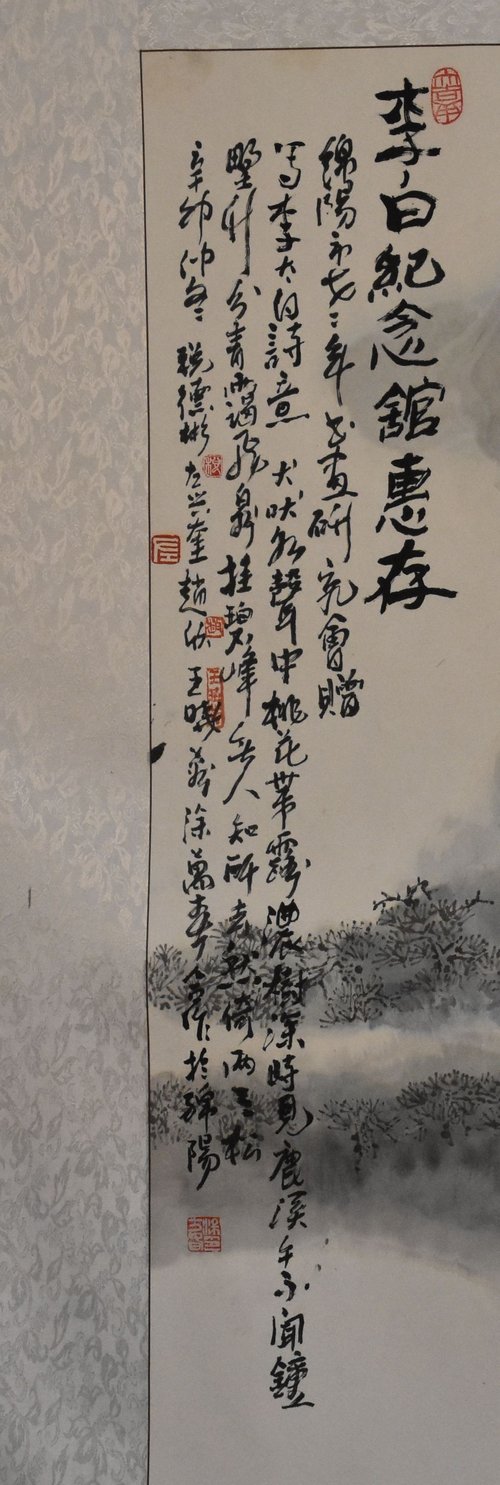 李白紀念館惠存
綿陽市老二年书画研究會贈
写李太白詩意 犬吠水聲中桃花帶露濃樹深時見鹿溪午不聞鐘
野竹分青靄飛泉挂碧峰無人知所去愁倚两三松
辛卯仲冬 税德彬左兴奎趙欣王曉 徐萬春合作於綿陽